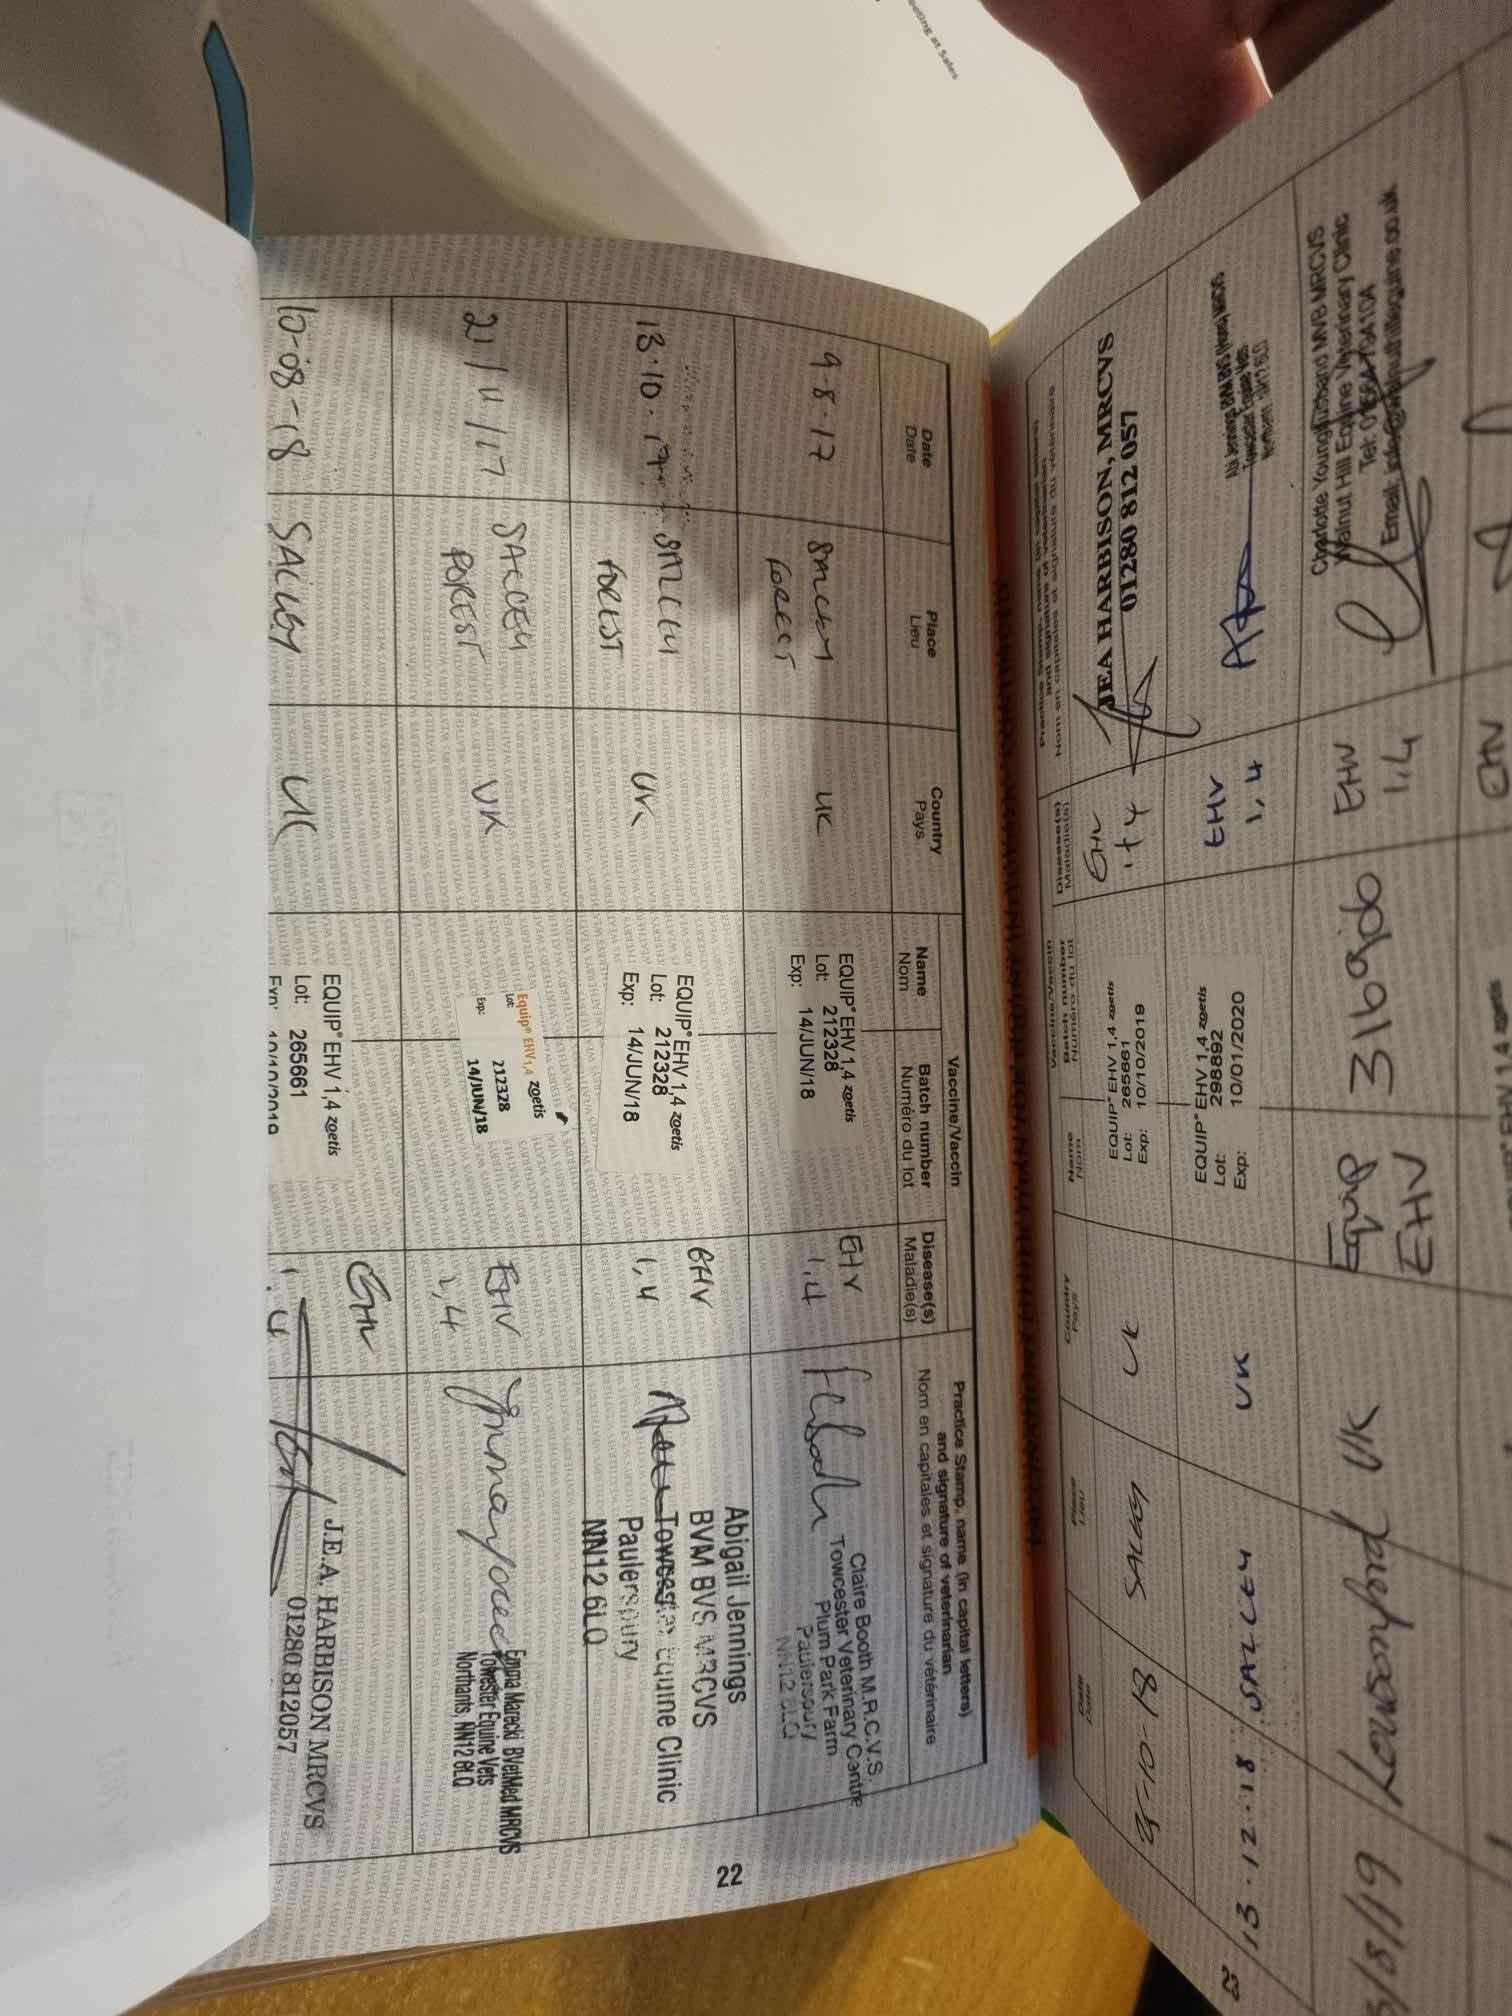 eeting at Sales
22
Date
Date
Place
Lieu
Country
Pays
Vaccine/Vaccin
Name
Nom
Batch number
Numéro du lot
Disease(s)
Maladie(s)
Practice Stamp, name (in capital letters)
and signature of veterinarian
Nom en capitales et signature du vétérinaire
9-8-17
FOREST
UK
EQUIP® EHV 1,4 zoetis
Lot: 212328
Exp: 14/JUN/18
EHV
1,4
Claire Booth M.R.C.V.S.
Towcester Veterinary Centre
Plum Park Farm
Paulerspury
NN12 6LQ
13.10.17
FOREST
UK
EQUIP® EHV 1,4 zoetis
Lot: 212328
Exp: 14/JUN/18
EHV
1,4
Abigail Jennings
BVM BVS MRCVS
Towcester Equine Clinic
Paulerspury
NN12 6LQ
21/11/17
SALCEY
FOREST
UK
Equip® EHV 1,4 zoetis
Lot: 212328
Exp: 14/JUN/18
EHV
1,4
Emma Marecki BVetMed MRCVS
Towcester Equine Vets
Northants, NN12 6LQ
10-08-18
SALCEY
UK
EQUIP® EHV 1,4 zoetis
Lot: 265661
Exp: 10/10/2019
EHV
1.4
J.E.A. HARBISON MRCVS
01280 812057
23
Date
Date
Place
Lieu
Country
Pays
Name
Nom
Batch number
Numéro du lot
Vaccine/Vaccin
Disease(s)
Maladie(s)
and signature of veterinarian
Nom en capitales et signature du vétérinaire
SALCEY
UK
EQUIP® EHV 1,4 zoetis
Lot: 265661
Exp: 10/10/2019
EHV
1+4
JEA HARBISON, MRCVS
01280 812 057
13.12.18
SALCEY
UK
EQUIP® EHV 1,4 zoetis
Lot: 298892
Exp: 10/01/2020
EHV
1,4
Abi Jennings BVM BVS (Hons) MRCVS
Towcester Equine Vets
Northants NN12 6LQ
/8/19
UK
Equip
EHV
EHV
1,4
Charlotte Younghusband MVB MRCVS
Walnut Hill Equine Veterinary Clinic
EHV
EHV 1,4 zoetis